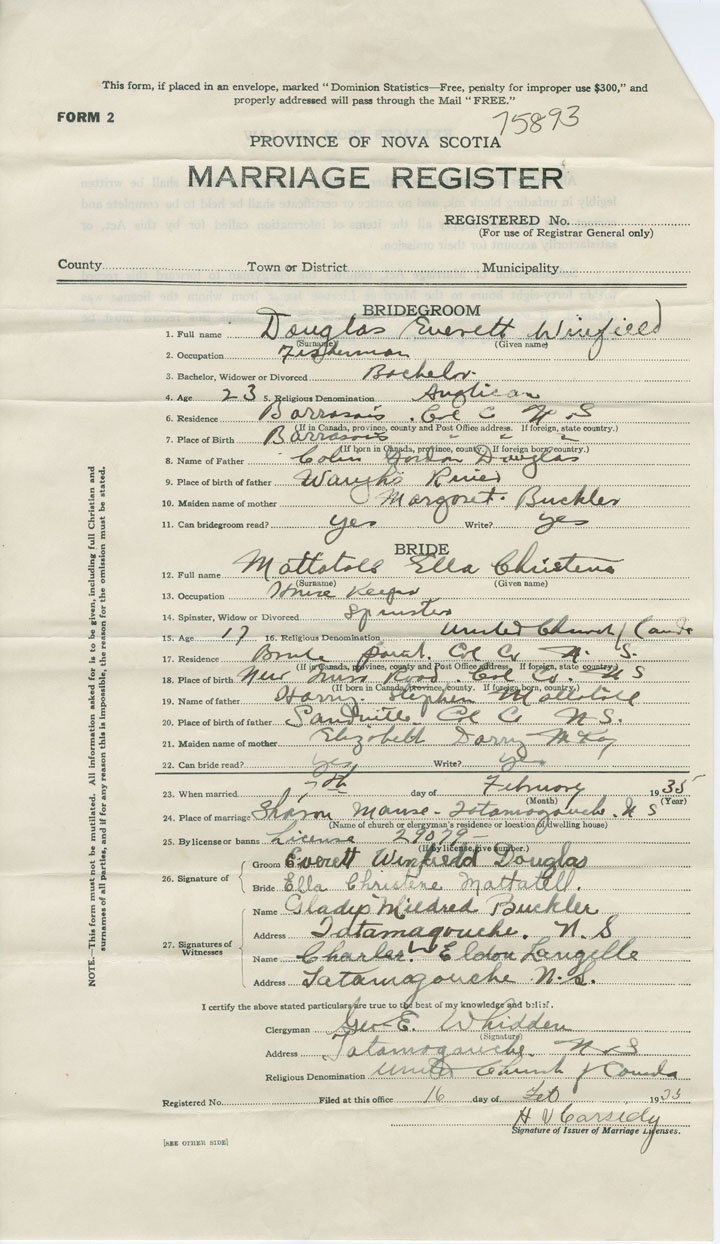 This form, if placed in an envelope, marked "Dominion Statistics—Free, penalty for improper use $300," and
properly addressed will pass through the Mail "FREE."
FORM 2
75893
PROVINCE OF NOVA SCOTIA
MARRIAGE REGISTER
REGISTERED No.
(For use of Registrar General only)
County Town or District Municipality
BRIDEGROOM
1. Full name Douglas Everett Winfield
(Surname) (Given name)
2. Occupation Fisherman
3. Bachelor, Widower or Divorced Bachelor
4. Age 23 5. Religious Denomination Anglican
6. Residence Barrasois Col Co N S
(If in Canada, province, county and Post Office address. If foreign, state country.)
7. Place of Birth Barrasois " " "
(If born in Canada, province, county. If foreign born, country.)
8. Name of Father Colin Gordon Douglas
9. Place of birth of father Waughs River
10. Maiden name of mother Margaret Buckler
11. Can bridegroom read? yes Write? yes
BRIDE
12. Full name Mattatall Ella Christene
(Surname) (Given name)
13. Occupation House Keeper
14. Spinster, Widow or Divorced Spinster
15. Age 17 16. Religious Denomination United Church of Canada
17. Residence Brule Col Co N. S.
(If in Canada, province, county and Post Office address. If foreign, state country.)
18. Place of birth New Truro Road Col Co. N S
(If born in Canada, province, county. If foreign born, country.)
19. Name of father Harry Stephen Mattatall
20. Place of birth of father Sandville Col Co N.S.
21. Maiden name of mother Elizabeth McKay
22. Can bride read? yes Write? yes
23. When married 7th day of February 1935
(Month) (Year)
24. Place of marriage Sharon Manse - Tatamagouche. N S
(Name of church or clergyman's residence or location of dwelling house)
25. By license or banns License 29079
(If by license, give number.)
26. Signature of
Groom Everett Winfield Douglas
Bride Ella Christene Mattatall.
27. Signatures of Witnesses
Name Gladys Mildred Buckler
Address Tatamagouche. N. S
Name Charles Eldon Langille
Address Tatamagouche N.S.
I certify the above stated particulars are true to the best of my knowledge and belief.
Clergyman Geo. E. Whidden
(Signature)
Address Tatamagouche. N S
Religious Denomination United Church of Canada
Registered No. Filed at this office 16 day of Feb 1935
H V Cassidy
Signature of Issuer of Marriage Licenses.
[SEE OTHER SIDE]
NOTE.—This form must not be mutilated. All information asked for is to be given, including full Christian and
surnames of all parties, and if for any reason this is impossible, the reason for the omission must be stated.